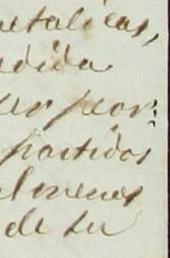 etalicas,
dida
er peor:
partidos
al menos
de su